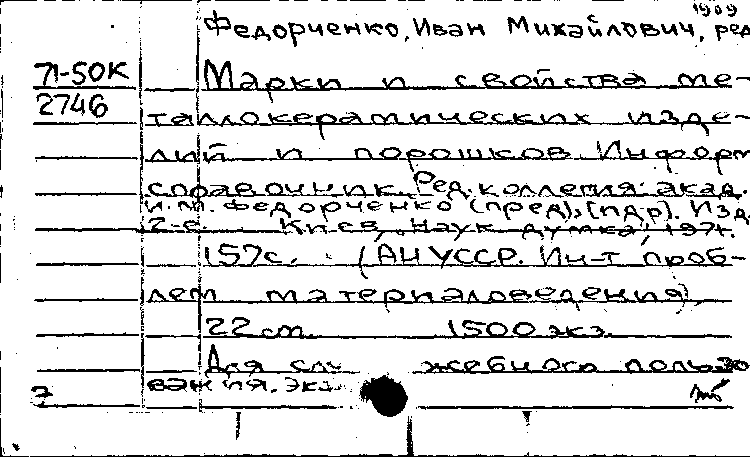 1909
Федорченко, Иван Михайлович, ред
71-50К Марки и свойства ме-
2746 таллокерамических изде-
лий и порошков. Информ
справочник. Ред. коллегия: акад.
И.М. Федорченко (пред), [и др]. Изд
2-е. Киев, "Наук думка", 1971.
157с. (АН УССР. Ин-т проб-
лем материаловедения)
22 см. 1500 экз.
Для служебного пользо
вания. Экз
7